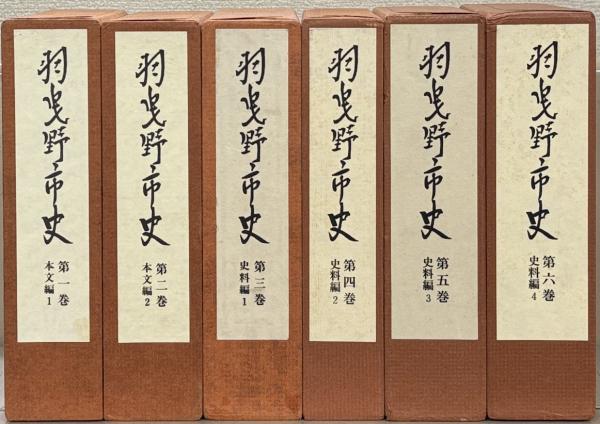 羽曳野市史
第一巻
本文編1
羽曳野市史
第二巻
本文編2
羽曳野市史
第三巻
史料編1
羽曳野市史
第四巻
史料編2
羽曳野市史
第五巻
史料編3
羽曳野市史
第六巻
史料編4